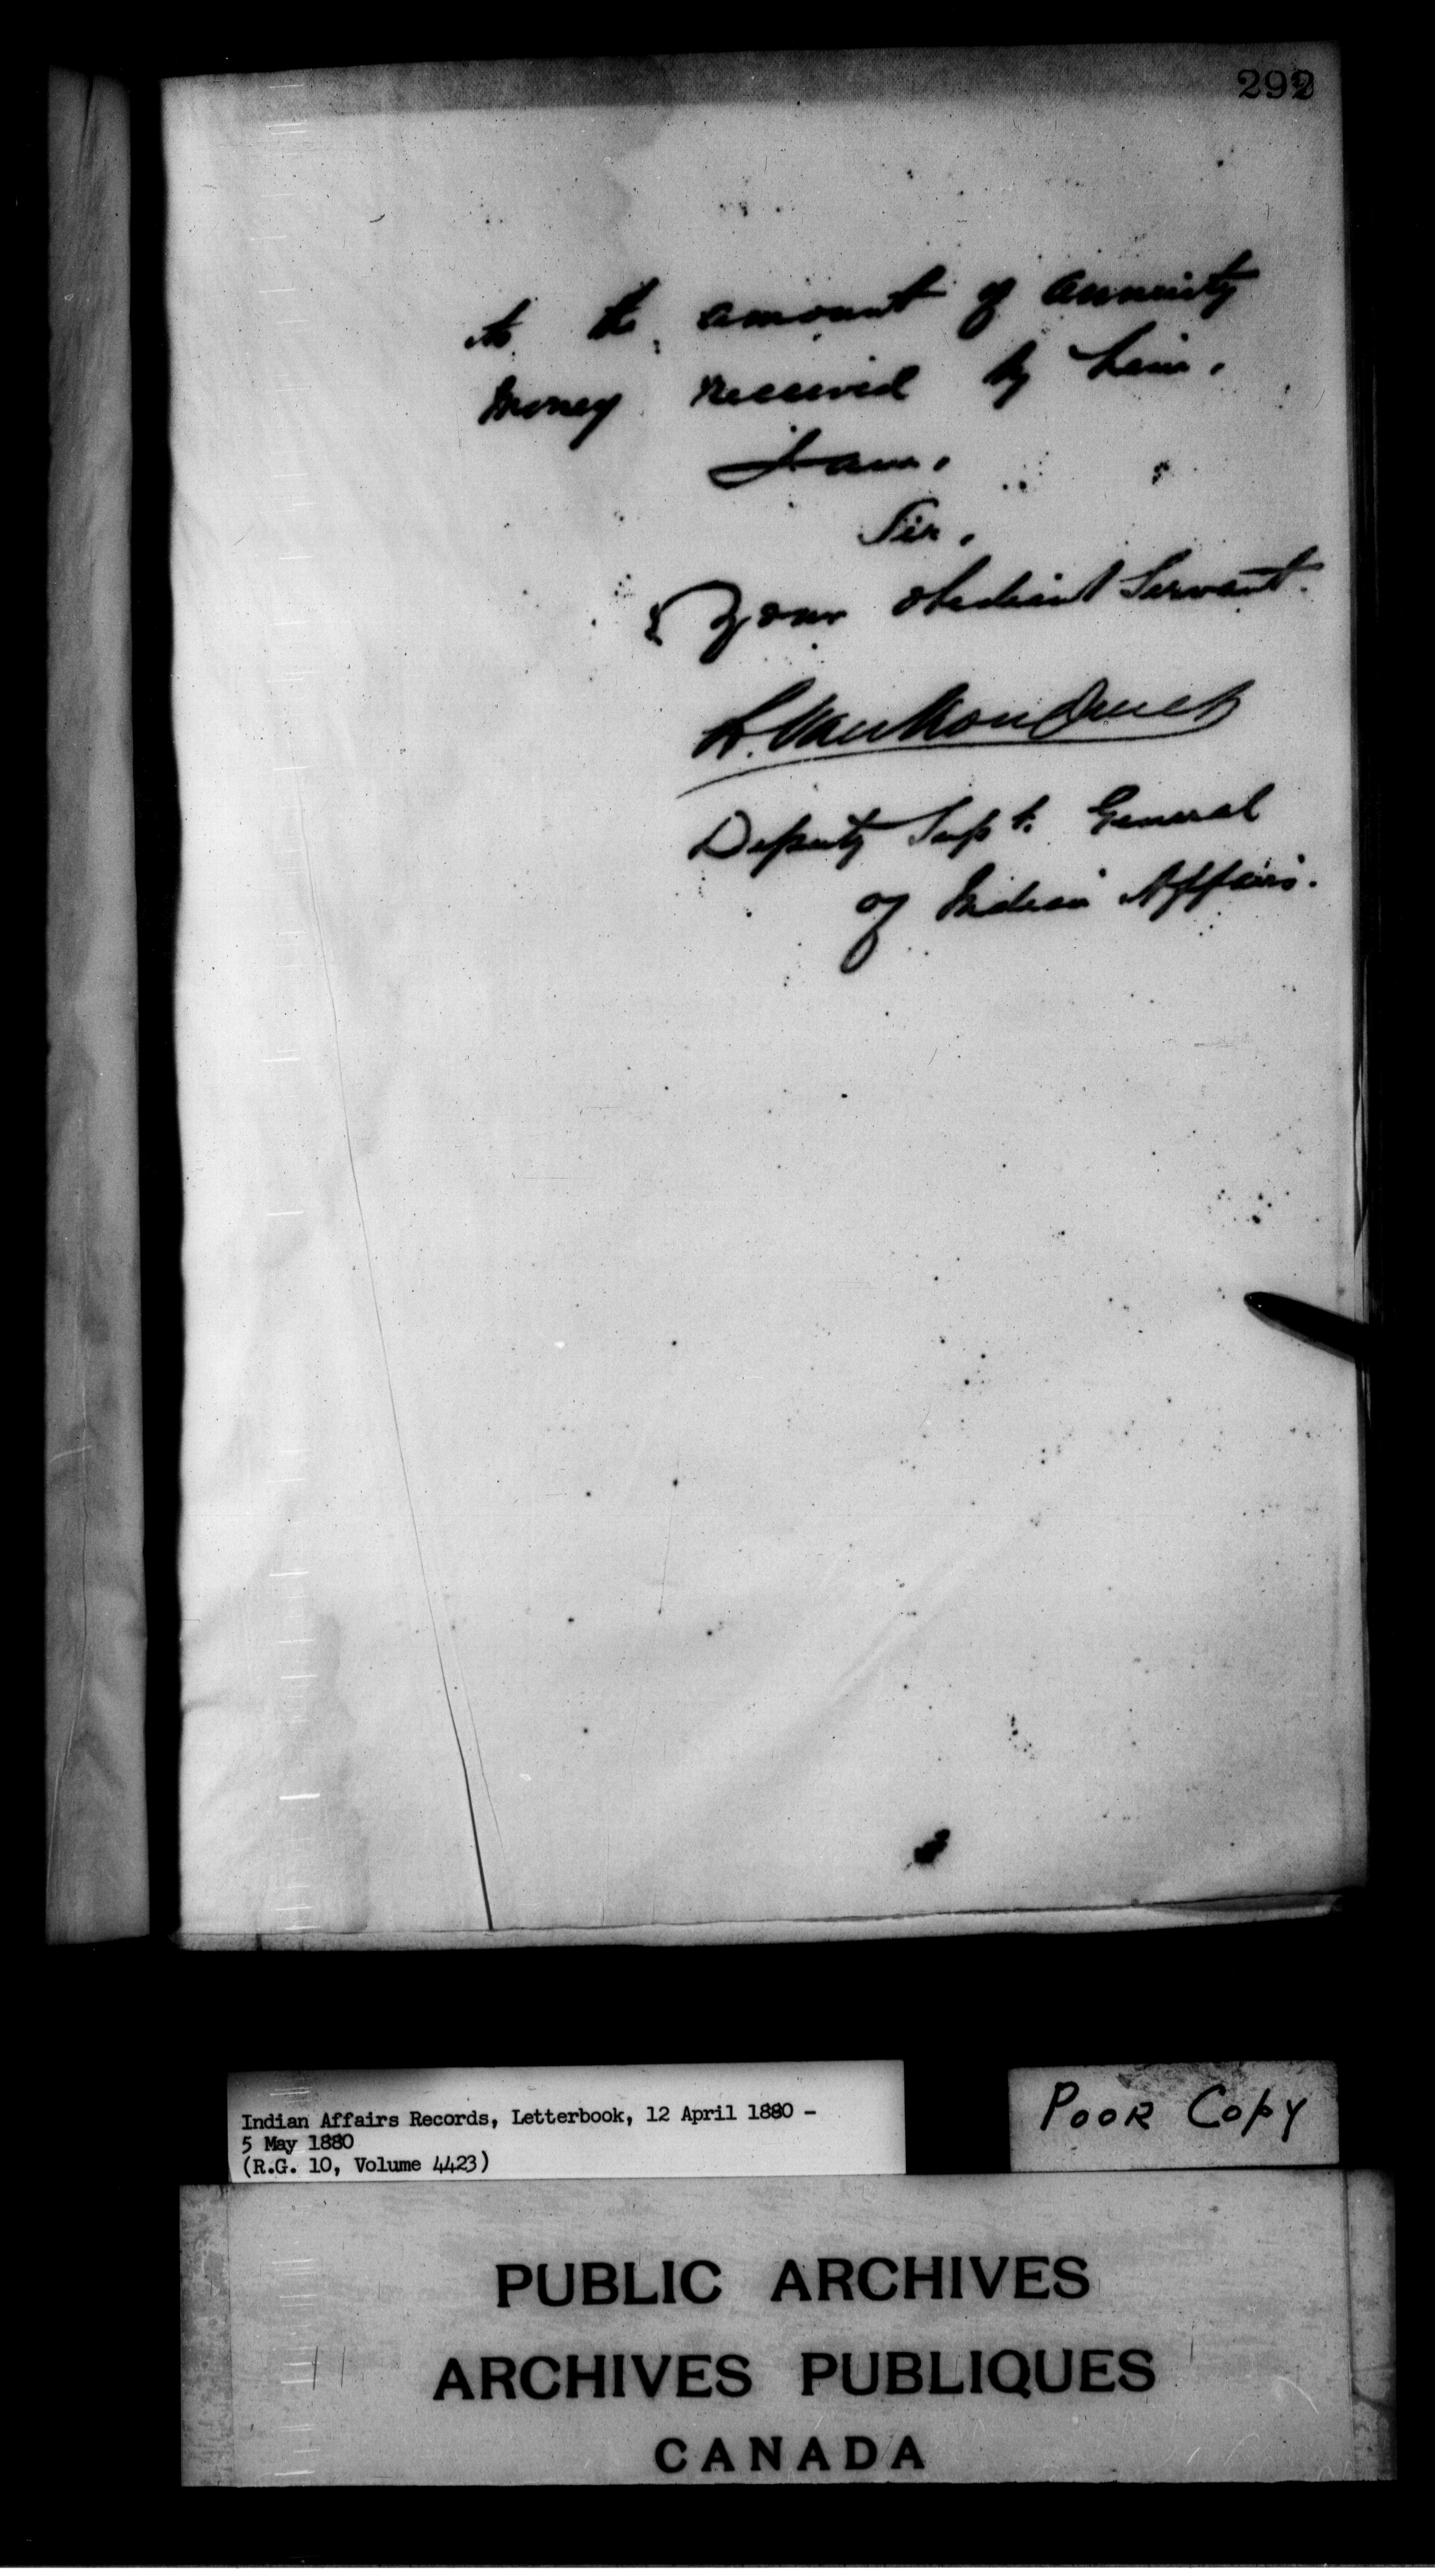 292
to the amount of annuity
money received by him.
I am,
Sir,
Your obedient Servant.
L. VanKoughnet
Deputy Supt. General
of Indian Affairs.
Indian Affairs Records, Letterbook, 12 April 1880 -
5 May 1880
(R.G. 10, Volume 4423)
POOR Copy
PUBLIC ARCHIVES
ARCHIVES PUBLIQUES
CANADA